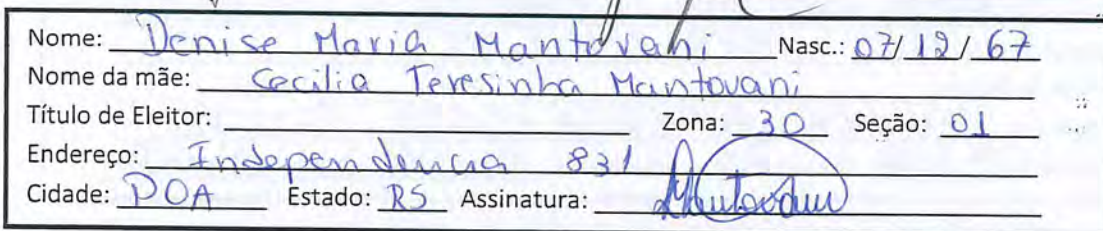 Nome: Denise Maria Mantovani Nasc.: 07/12/67
Nome da mãe: Cecilia Teresinha Mantovani
Título de Eleitor: Zona: 30 Seção: 01
Endereço: Independencia 831
Cidade: POA Estado: RS Assinatura: Mantovani